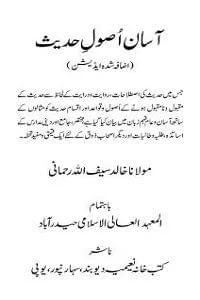 آسان اُصولِ حدیث
(اضافہ شدہ ایڈیشن)
جس میں حدیث کی اصطلاحات، روایت و درایت کے لحاظ سے حدیث کے
مقبول و نامقبول ہونے کے اُصول و قواعد اور اقسامِ حدیث کو مثالوں کے
ساتھ آسان و عام فہم زبان میں بیان کیا گیا ہے، مختصر، جامع اور دینی مدارس کے
اساتذہ و طلبہ و طالبات اور دیگر اصحابِ ذوق کے لئے ایک قیمتی و مفید تحفہ۔
مولانا خالد سیف اللہ رحمانی
باہتمام
المعہد العالی الاسلامی حیدرآباد
ناشر
کتب خانہ نعیمیہ دیوبند، سہارنپور، یوپی